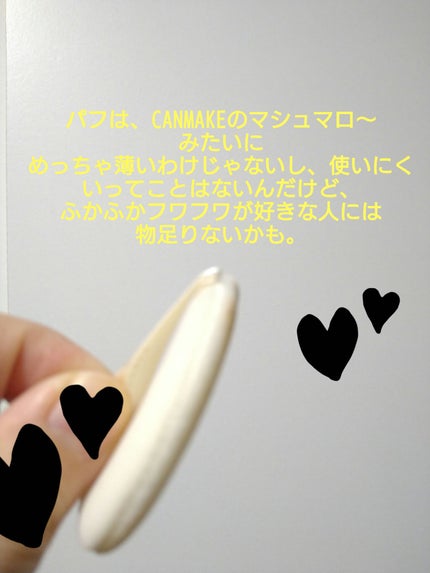 パフは、CANMAKEのマシュマロ～
みたいに
めっちゃ薄いわけじゃないし、使いにく
いってことはないんだけど、
ふかふかフワフワが好きな人には
物足りないかも。